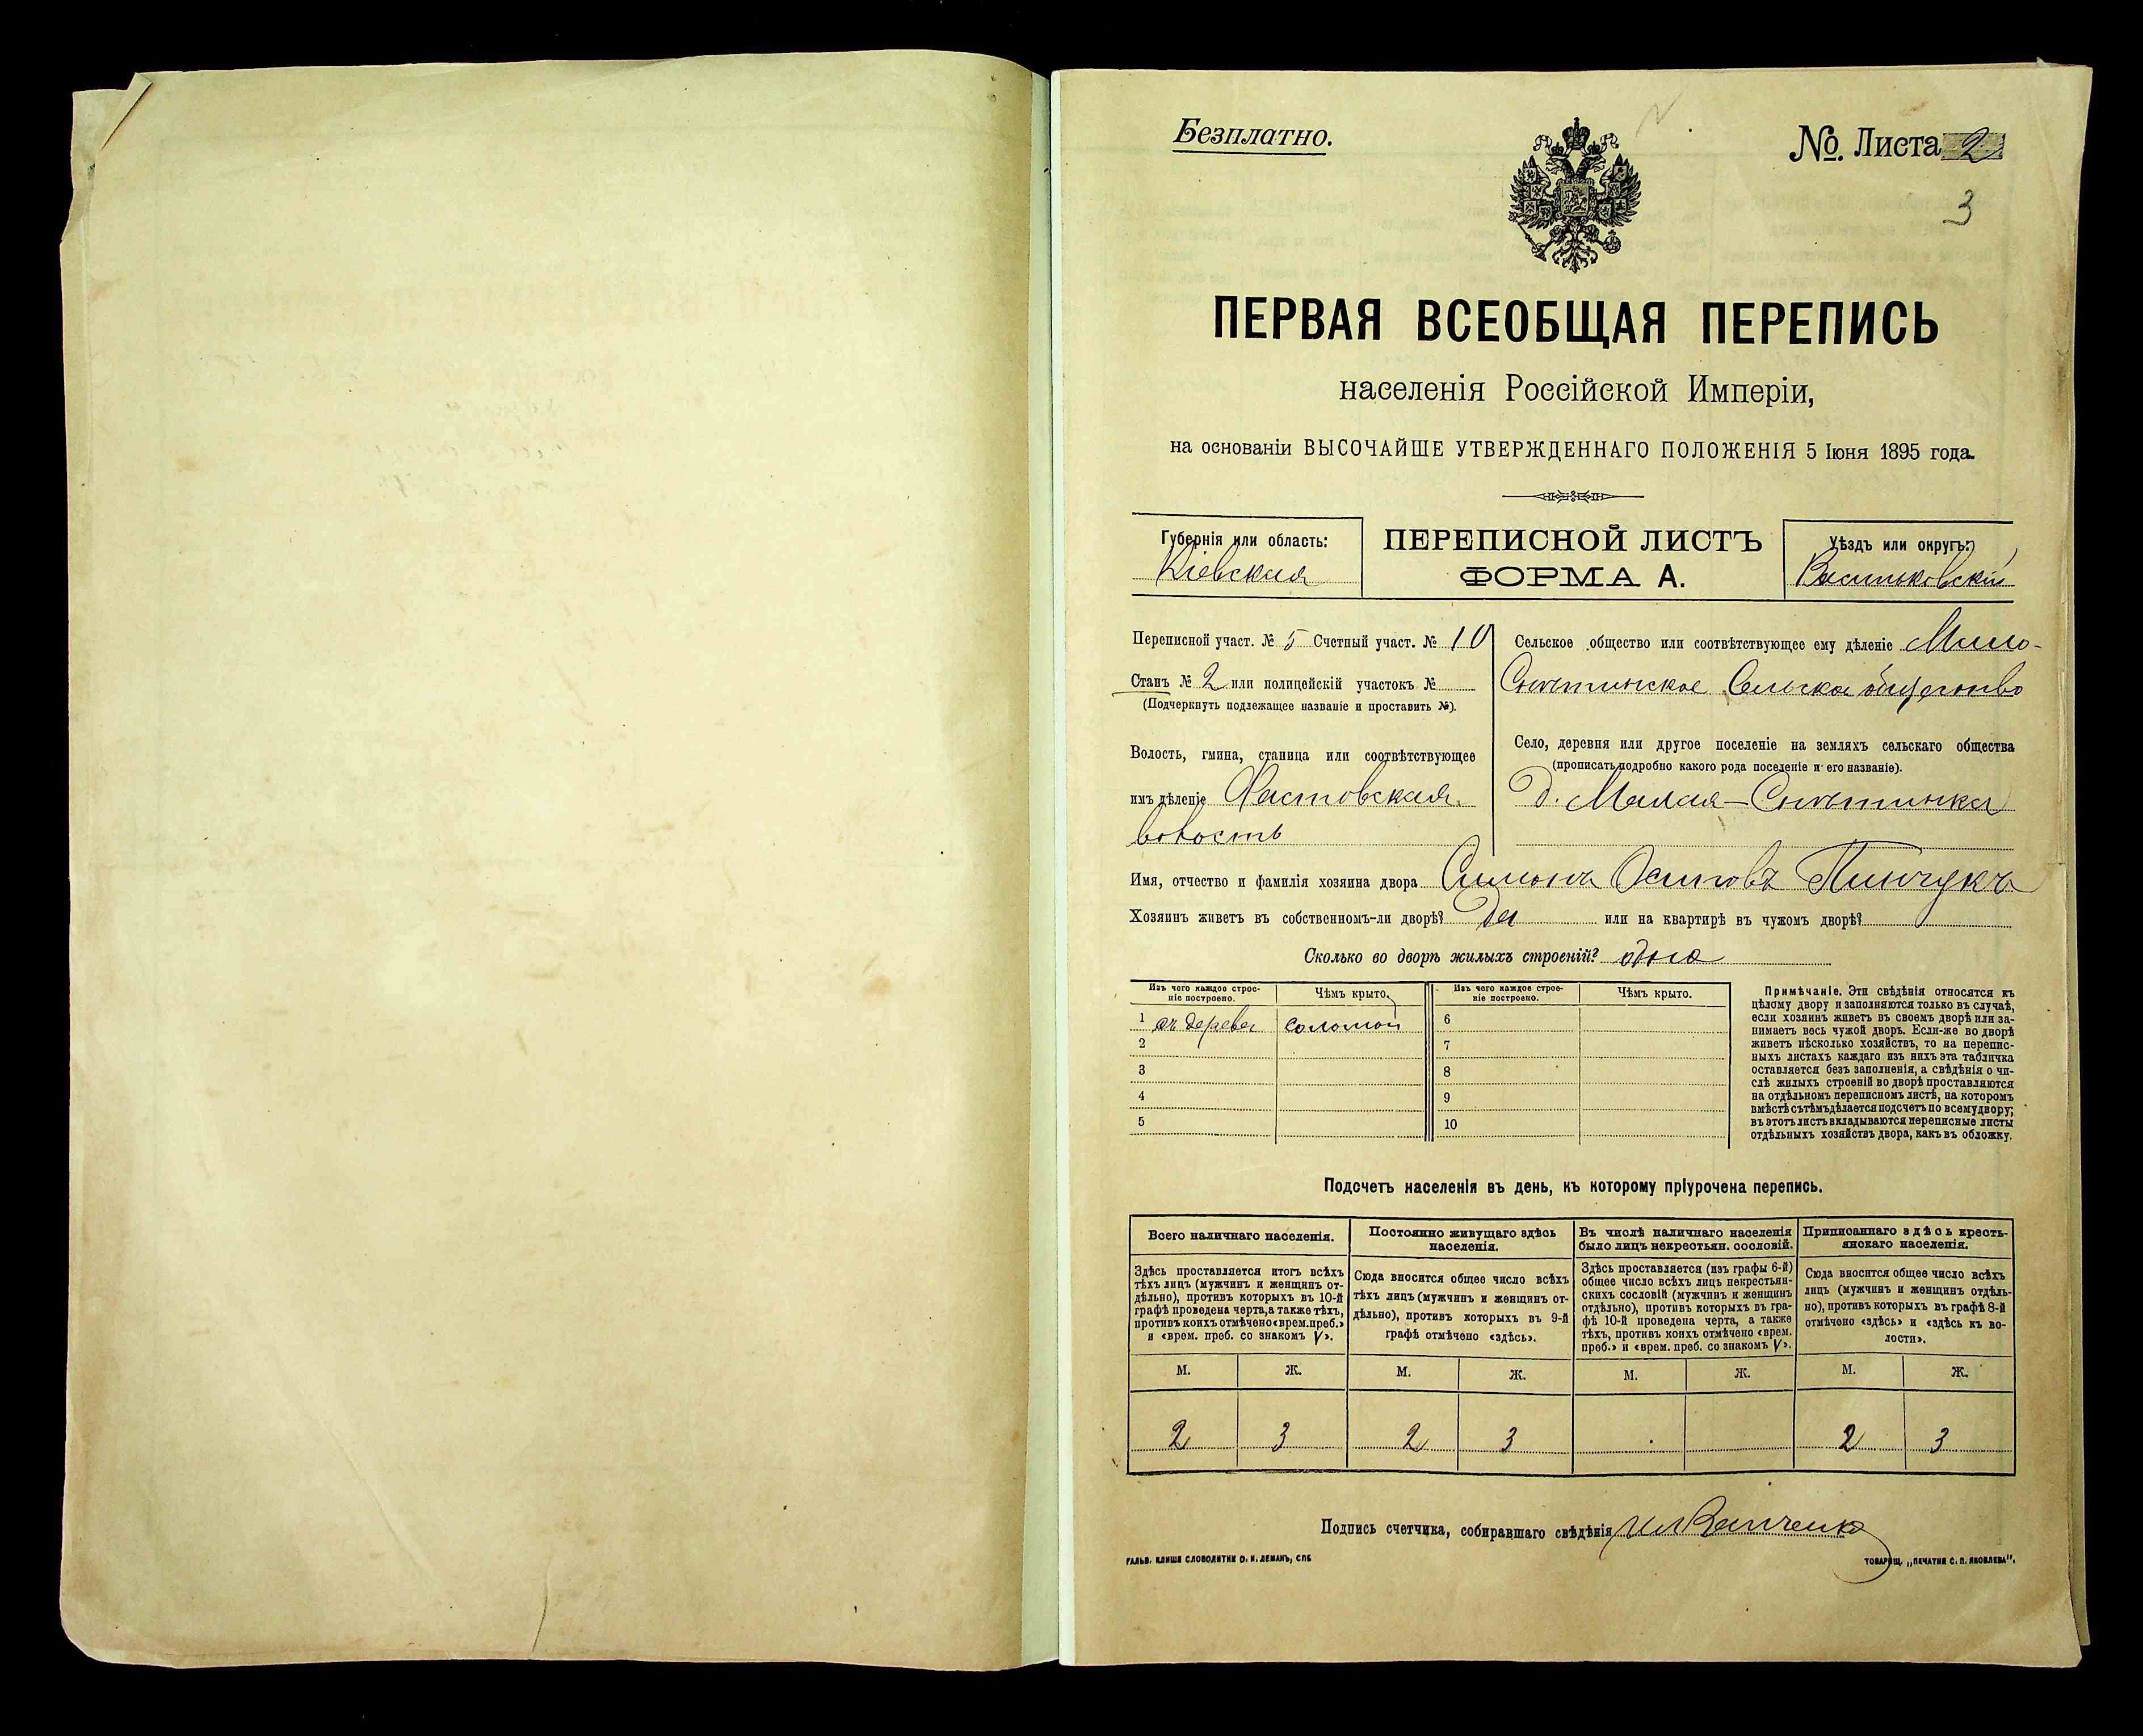 Безплатно.
№ Листа 2
3
ПЕРВАЯ ВСЕОБЩАЯ ПЕРЕПИСЬ
населенія Россійской Имперіи,
на основаніи ВЫСОЧАЙШЕ УТВЕРЖДЕННАГО ПОЛОЖЕНІЯ 5 Іюня 1895 года.
Губернія или область:
Кіевская
ПЕРЕПИСНОЙ ЛИСТЪ
ФОРМА А.
Уѣздъ или округъ:
Васильковскій
Переписной участ. № 5 Счетный участ. № 10
Станъ № 2 или полицейскій участокъ №
(Подчеркнуть подлежащее названіе и проставить №).
Волость, гмина, станица или соотвѣтствующее
имъ дѣленіе Фастовская
волость
Сельское общество или соотвѣтствующее ему дѣленіе Мало-
Снѣтинское Сельское общество
Село, деревня или другое поселеніе на земляхъ сельскаго общества
(прописать подробно какого рода поселеніе и его названіе).
д. Малая-Снѣтинка
Имя, отчество и фамилія хозяина двора Симонъ Осиповъ Пинчукъ
Хозяинъ живетъ въ собственномъ-ли дворѣ? Да или на квартирѣ въ чужомъ дворѣ?
Сколько во дворѣ жилыхъ строеній? одно
Изъ чего каждое строе-
ніе построено.
Чѣмъ крыто.
Изъ чего каждое строе-
ніе построено.
Чѣмъ крыто.
1 съ дерева соломой
2
3
4
5
6
7
8
9
10
Примѣчаніе. Эти свѣдѣнія относятся къ
цѣлому двору и заполняются только въ случаѣ,
если хозяинъ живетъ въ своемъ дворѣ или за-
нимаетъ весь чужой дворъ. Если-же во дворѣ
живетъ нѣсколько хозяйствъ, то на перепис-
ныхъ листахъ каждаго изъ нихъ эта табличка
оставляется безъ заполненія, а свѣдѣнія о чи-
слѣ жилыхъ строеній во дворѣ проставляются
на отдѣльномъ переписномъ листѣ, на которомъ
вмѣстѣ съ тѣмъ дѣлается подсчетъ по всему двору;
въ этотъ листъ вкладываются переписные листы
отдѣльныхъ хозяйствъ двора, какъ въ обложку.
Подсчетъ населенія въ день, къ которому пріурочена перепись.
Всего наличнаго населенія.
Здѣсь проставляется итогъ всѣхъ
тѣхъ лицъ (мужчинъ и женщинъ от-
дѣльно), противъ которыхъ въ 10-й
графѣ проведена черта, а также тѣхъ,
противъ коихъ отмѣчено «врем. преб.»
и «врем. преб. со знакомъ V».
Постоянно живущаго здѣсь
населенія.
Сюда вносится общее число всѣхъ
тѣхъ лицъ (мужчинъ и женщинъ от-
дѣльно), противъ которыхъ въ 9-й
графѣ отмѣчено «здѣсь».
Въ числѣ наличнаго населенія
было лицъ некрестьян. сословій.
Здѣсь проставляется (изъ графы 6-й)
общее число всѣхъ лицъ некрестьян-
скихъ сословій (мужчинъ и женщинъ
отдѣльно), противъ которыхъ въ гра-
фѣ 10-й проведена черта, а также
тѣхъ, противъ коихъ отмѣчено «врем.
преб.» и «врем. преб. со знакомъ V».
Приписаннаго здѣсь кресть-
янскаго населенія.
Сюда вносится общее число всѣхъ
лицъ (мужчинъ и женщинъ отдѣль-
но), противъ которыхъ въ графѣ 8-й
отмѣчено «здѣсь» и «здѣсь къ во-
лости».
М. Ж. М. Ж. М. Ж. М. Ж.
2 3 2 3 2 3
Подпись счетчика, собиравшаго свѣдѣнія
ГАЛЬВ. КЛИШЕ СЛОВОЛИТНИ О. И. ЛЕМАНЪ, СПБ
ТОВАРИЩ. „ПЕЧАТНЯ С. П. ЯКОВЛЕВА".